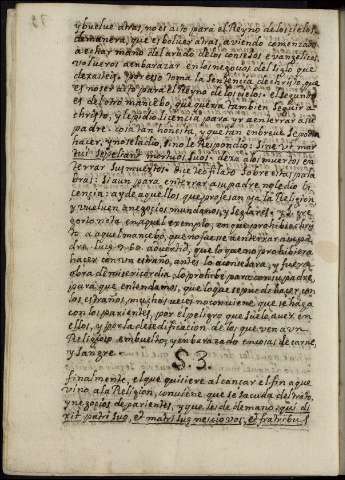 y buelue atras, no es apto para el Reyno de los cielos,
demanera, que es boluer atras, aviendo comenzado
a echar mano del arado de los consejos evangelicos,
voluerse a enbarazar en los negocios del siglo que
dexasteis. Por eso toma la sentencia de christo, que
es no ser apto para el Reyno de los cielos. el segundo
es del otro mancebo, que queria tambien seguir a
christo, y le pidio licencia para yr a enterrar a su
padre. cosa tan honesta, y que tan en breve se podia
hacer, y no se la dio, sino le Respondio: Sine ut mor
tui sepeliant mortuos suos. dexa a los muertos en
terrar sus muertos. dice teofilato sobre estas pala
bras: Si aun para enterrar a su padre no le dio li
cencia: ay de aquellos, que profesan ya la Religion
y vuelven a negocios mundanos, y seglares.
gorio nota en aquel exemplo, en que prohibe christo
a aquel mancebo, que no fuese a enterrar a su pa
dre. que lo que no prohibiera
hacer con un estraño, antes lo aconsejara, y fuera
obra de misericordia: lo prohibe para con su padre,
para que entendamos, que lo que se puede hacer con
los estraños, muchas veces no conviene que se haga
con los parientes, por el peligro que suele auer en
ellos, y por la desedificacion de los que ven a un
Religioso embuelto, y embarazado en cosas de carne,
y sangre.
S. 3.
finalmente, el que quisiere alcanzar el fin a que
vino a la Religion, conviene, que se sacuda del trato,
y negocios de parientes, y que les de de mano. qui di
xit patri suo, et matri suæ nescio vos, et fratribus